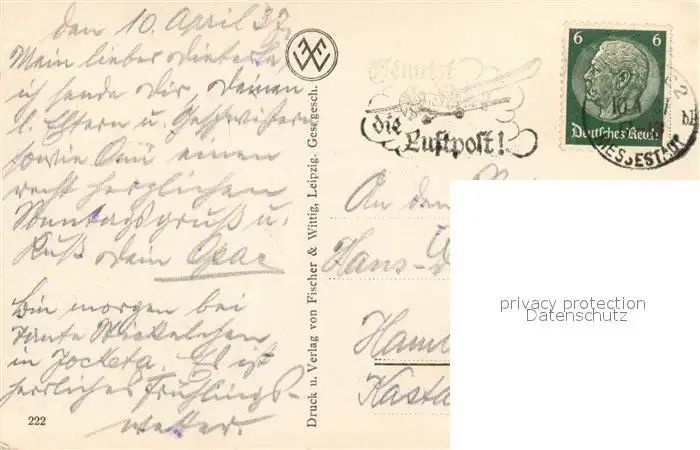 den 10. April 37.
Mein lieber Dieterle,
ich sende Dir, Deinen
l. Eltern u. Geschwistern
sowie Omi einen
recht herzlichen
Sonntagsgruß u.
Kuß Dein Opa
Bin morgen bei
Tante
in Jocketa. Es ist
herrliches Frühlings-
wetter.
222
Druck u. Verlag von Fischer & Wittig, Leipzig. Ges. gesch.
Benutzt
die
Luftpost!
6 6
Deutsches Reich
10.4
MESSESTADT
An den
Hans-
Kasta
privacy protection
Datenschutz